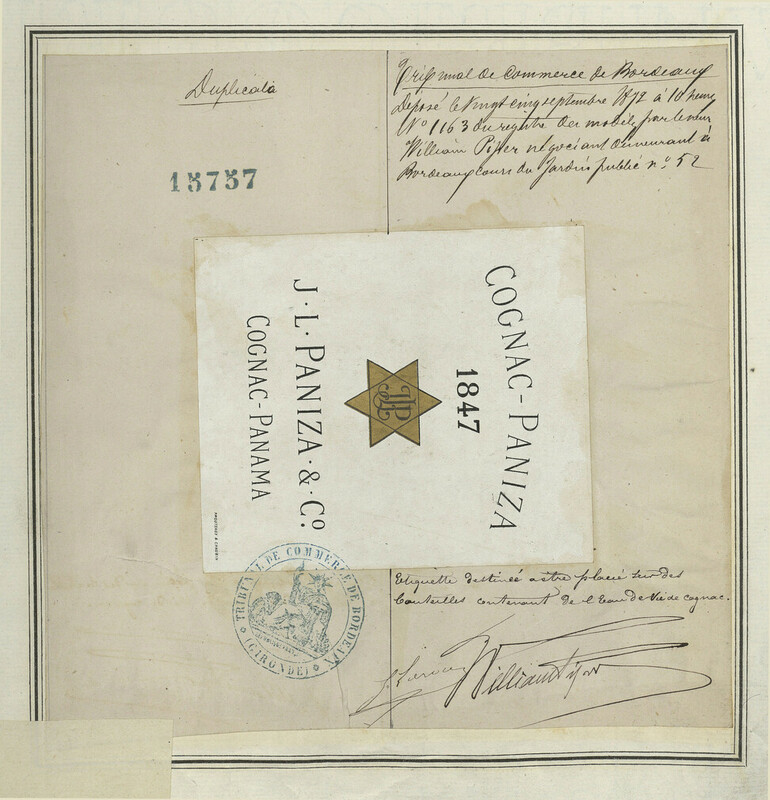 Duplicata
15757
Tribunal de Commerce de Bordeaux
Déposé le vingt cinq septembre 1872 à 10 heures
No 1163 du registre des modèles par le sieur
William négociant demeurant à
Bordeaux cours du Jardin public no. 52
COGNAC-PANIZA
1847
JLP
J·L·PANIZA·&·Co
COGNAC-PANAMA
TRIBUNAL DE COMMERCE DE BORDEAUX
(GIRONDE)
Etiquette destinée a etre placée sur des
bouteilles contenant de l'Eau de Vie de cognac.
William